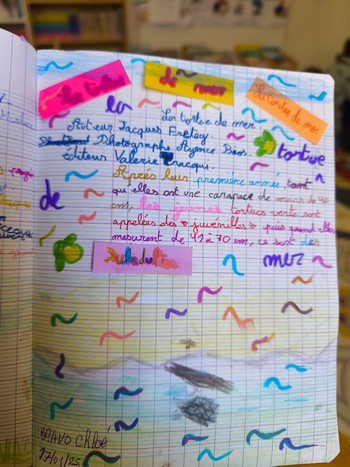 de mer
La tortue de mer
la
La tortue de mer.
Auteur Jacques Fretey
Photographe Agence Bios.
tortue
éditeur Valerie Tracqui.
Après leur première année tant
qu'elles ont une carapace de moins de 40
de
cm, les jeunes tortues verte sont
appelées des « juveniles » puis quand elles
mesurent de 41 à 70 cm, ce sont des
mer
Subadultes
BRAVO Chloé
17/01/25